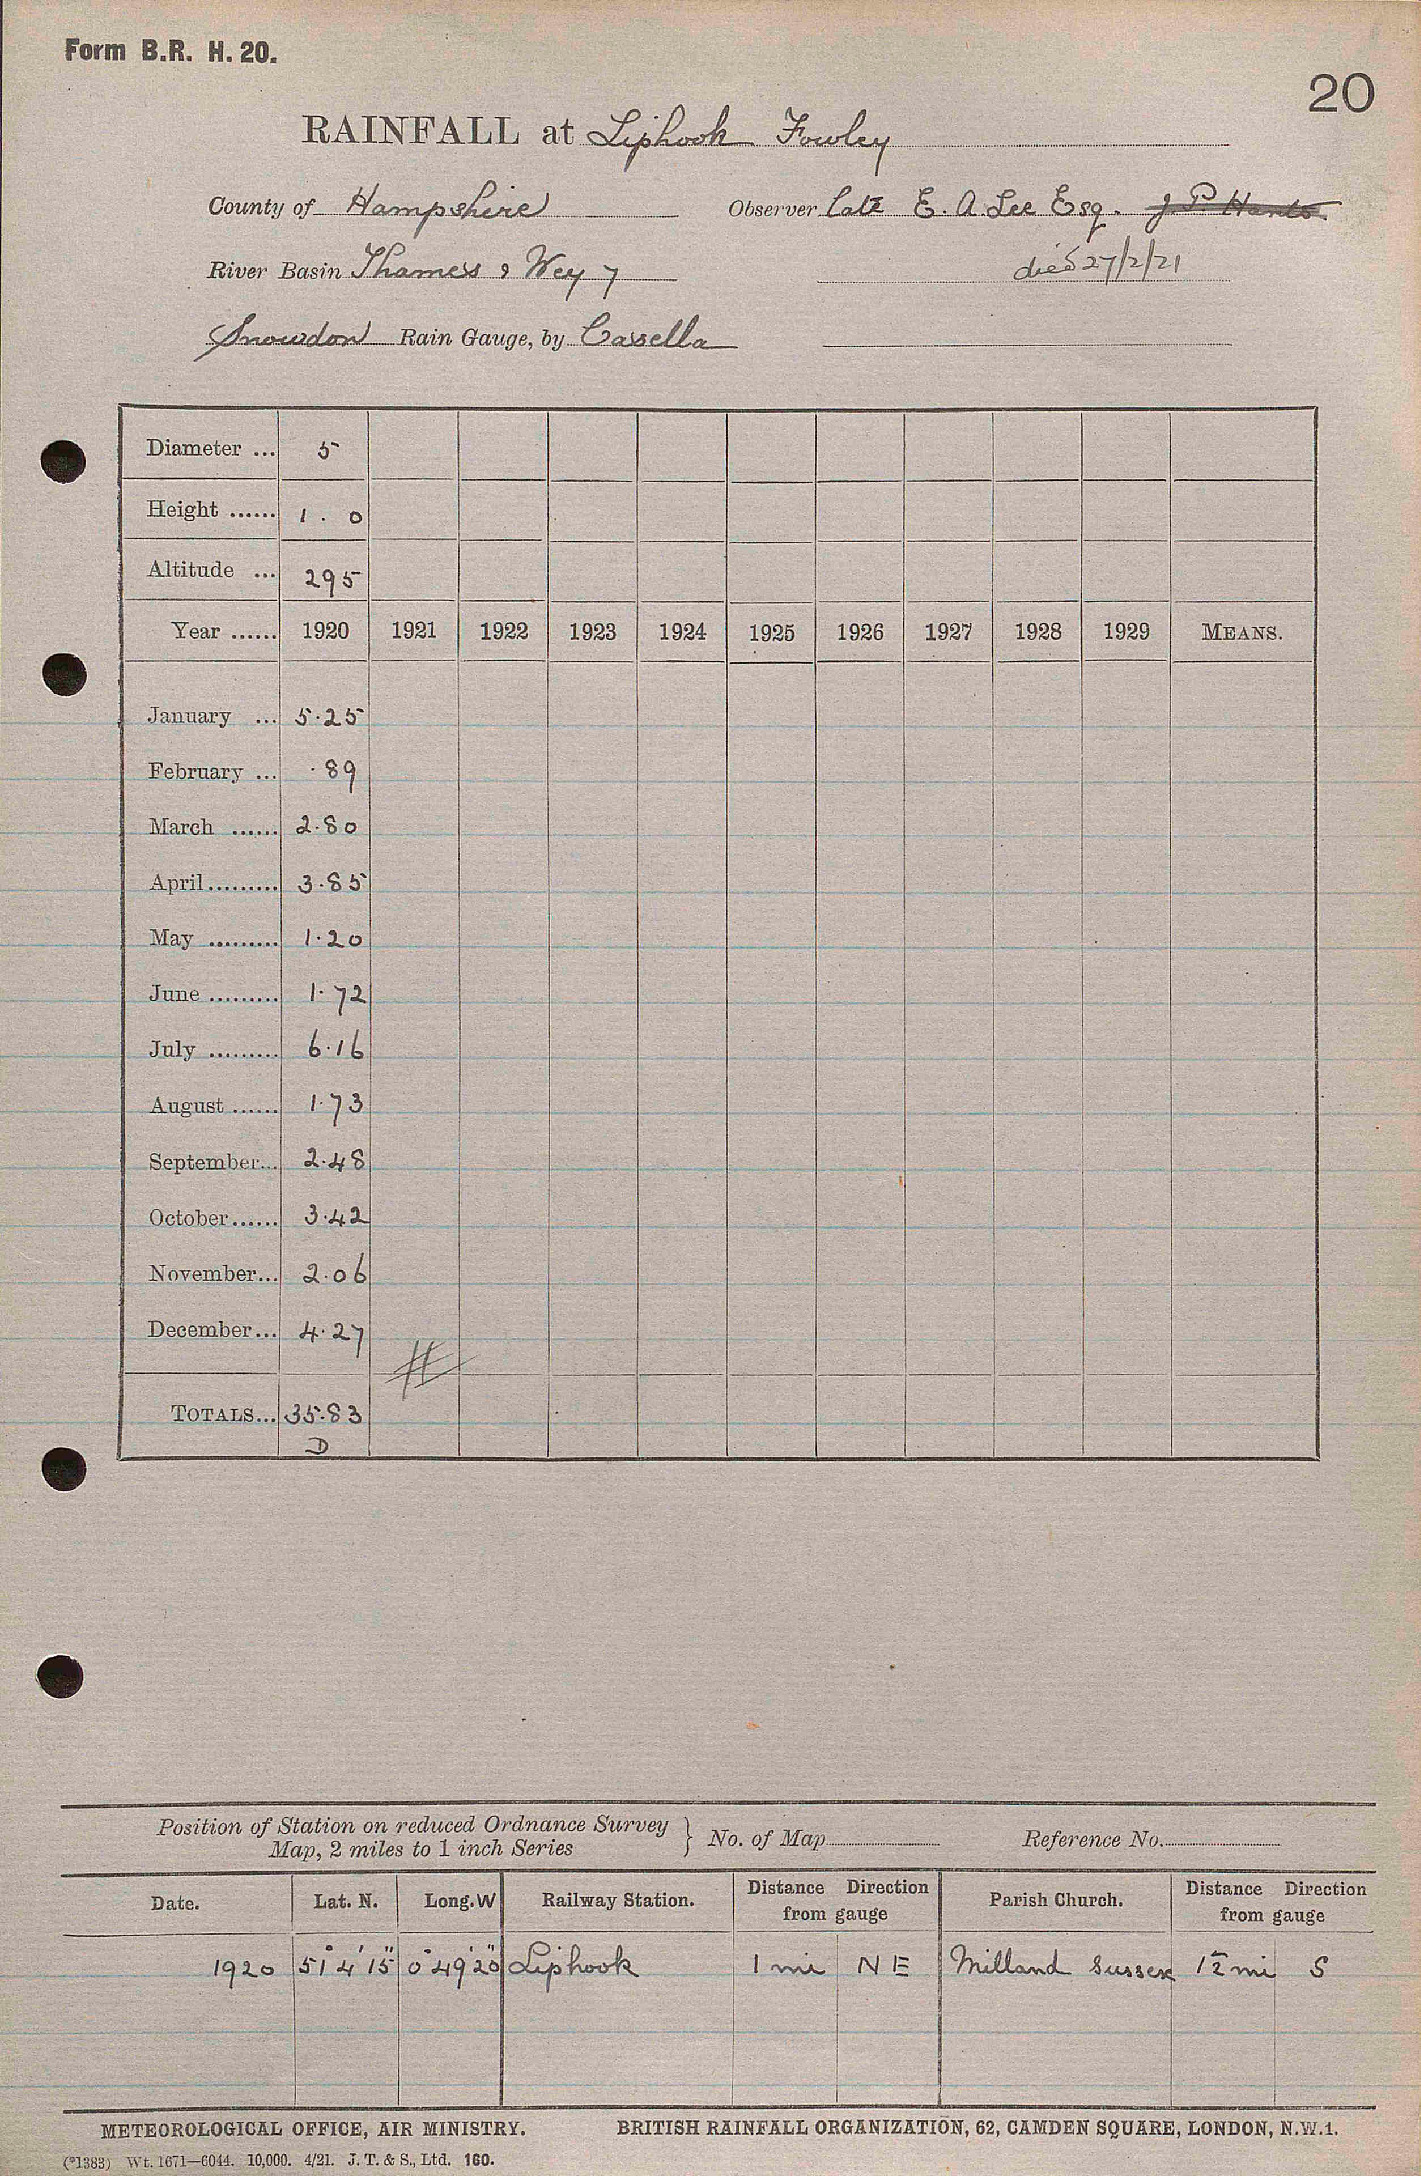 Form B.R. H. 20.
20
RAINFALL at Liphook Fowley
County of Hampshire Observer late E. A. Lee Esq. J.P. Hants.
River Basin Thames & Wey 7 died 27/2/21
Snowdon Rain Gauge, by Cassella
Diameter ... 5
Height ...... 1 . 0
Altitude ... 295
Year ...... 1920 1921 1922 1923 1924 1925 1926 1927 1928 1929 MEANS.
January ... 5.25
February ... .89
March ...... 2.80
April ......... 3.85
May ......... 1.20
June ......... 1.72
July ......... 6.16
August ...... 1.73
September... 2.48
October ...... 3.42
November... 2.06
December... 4.27
TOTALS... 35.83
D
Position of Station on reduced Ordnance Survey
Map, 2 miles to 1 inch Series } No. of Map Reference No.
Date. Lat. N. Long. W Railway Station. Distance Direction from gauge Parish Church. Distance Direction from gauge
1920 51° 4' 15" 0° 49' 20" Liphook 1 mi N E Milland Sussex 1½ mi S
METEOROLOGICAL OFFICE, AIR MINISTRY. BRITISH RAINFALL ORGANIZATION, 62, CAMDEN SQUARE, LONDON, N.W.1.
(*1383) Wt. 1671—6044. 10,000. 4/21. J. T. & S., Ltd. 160.